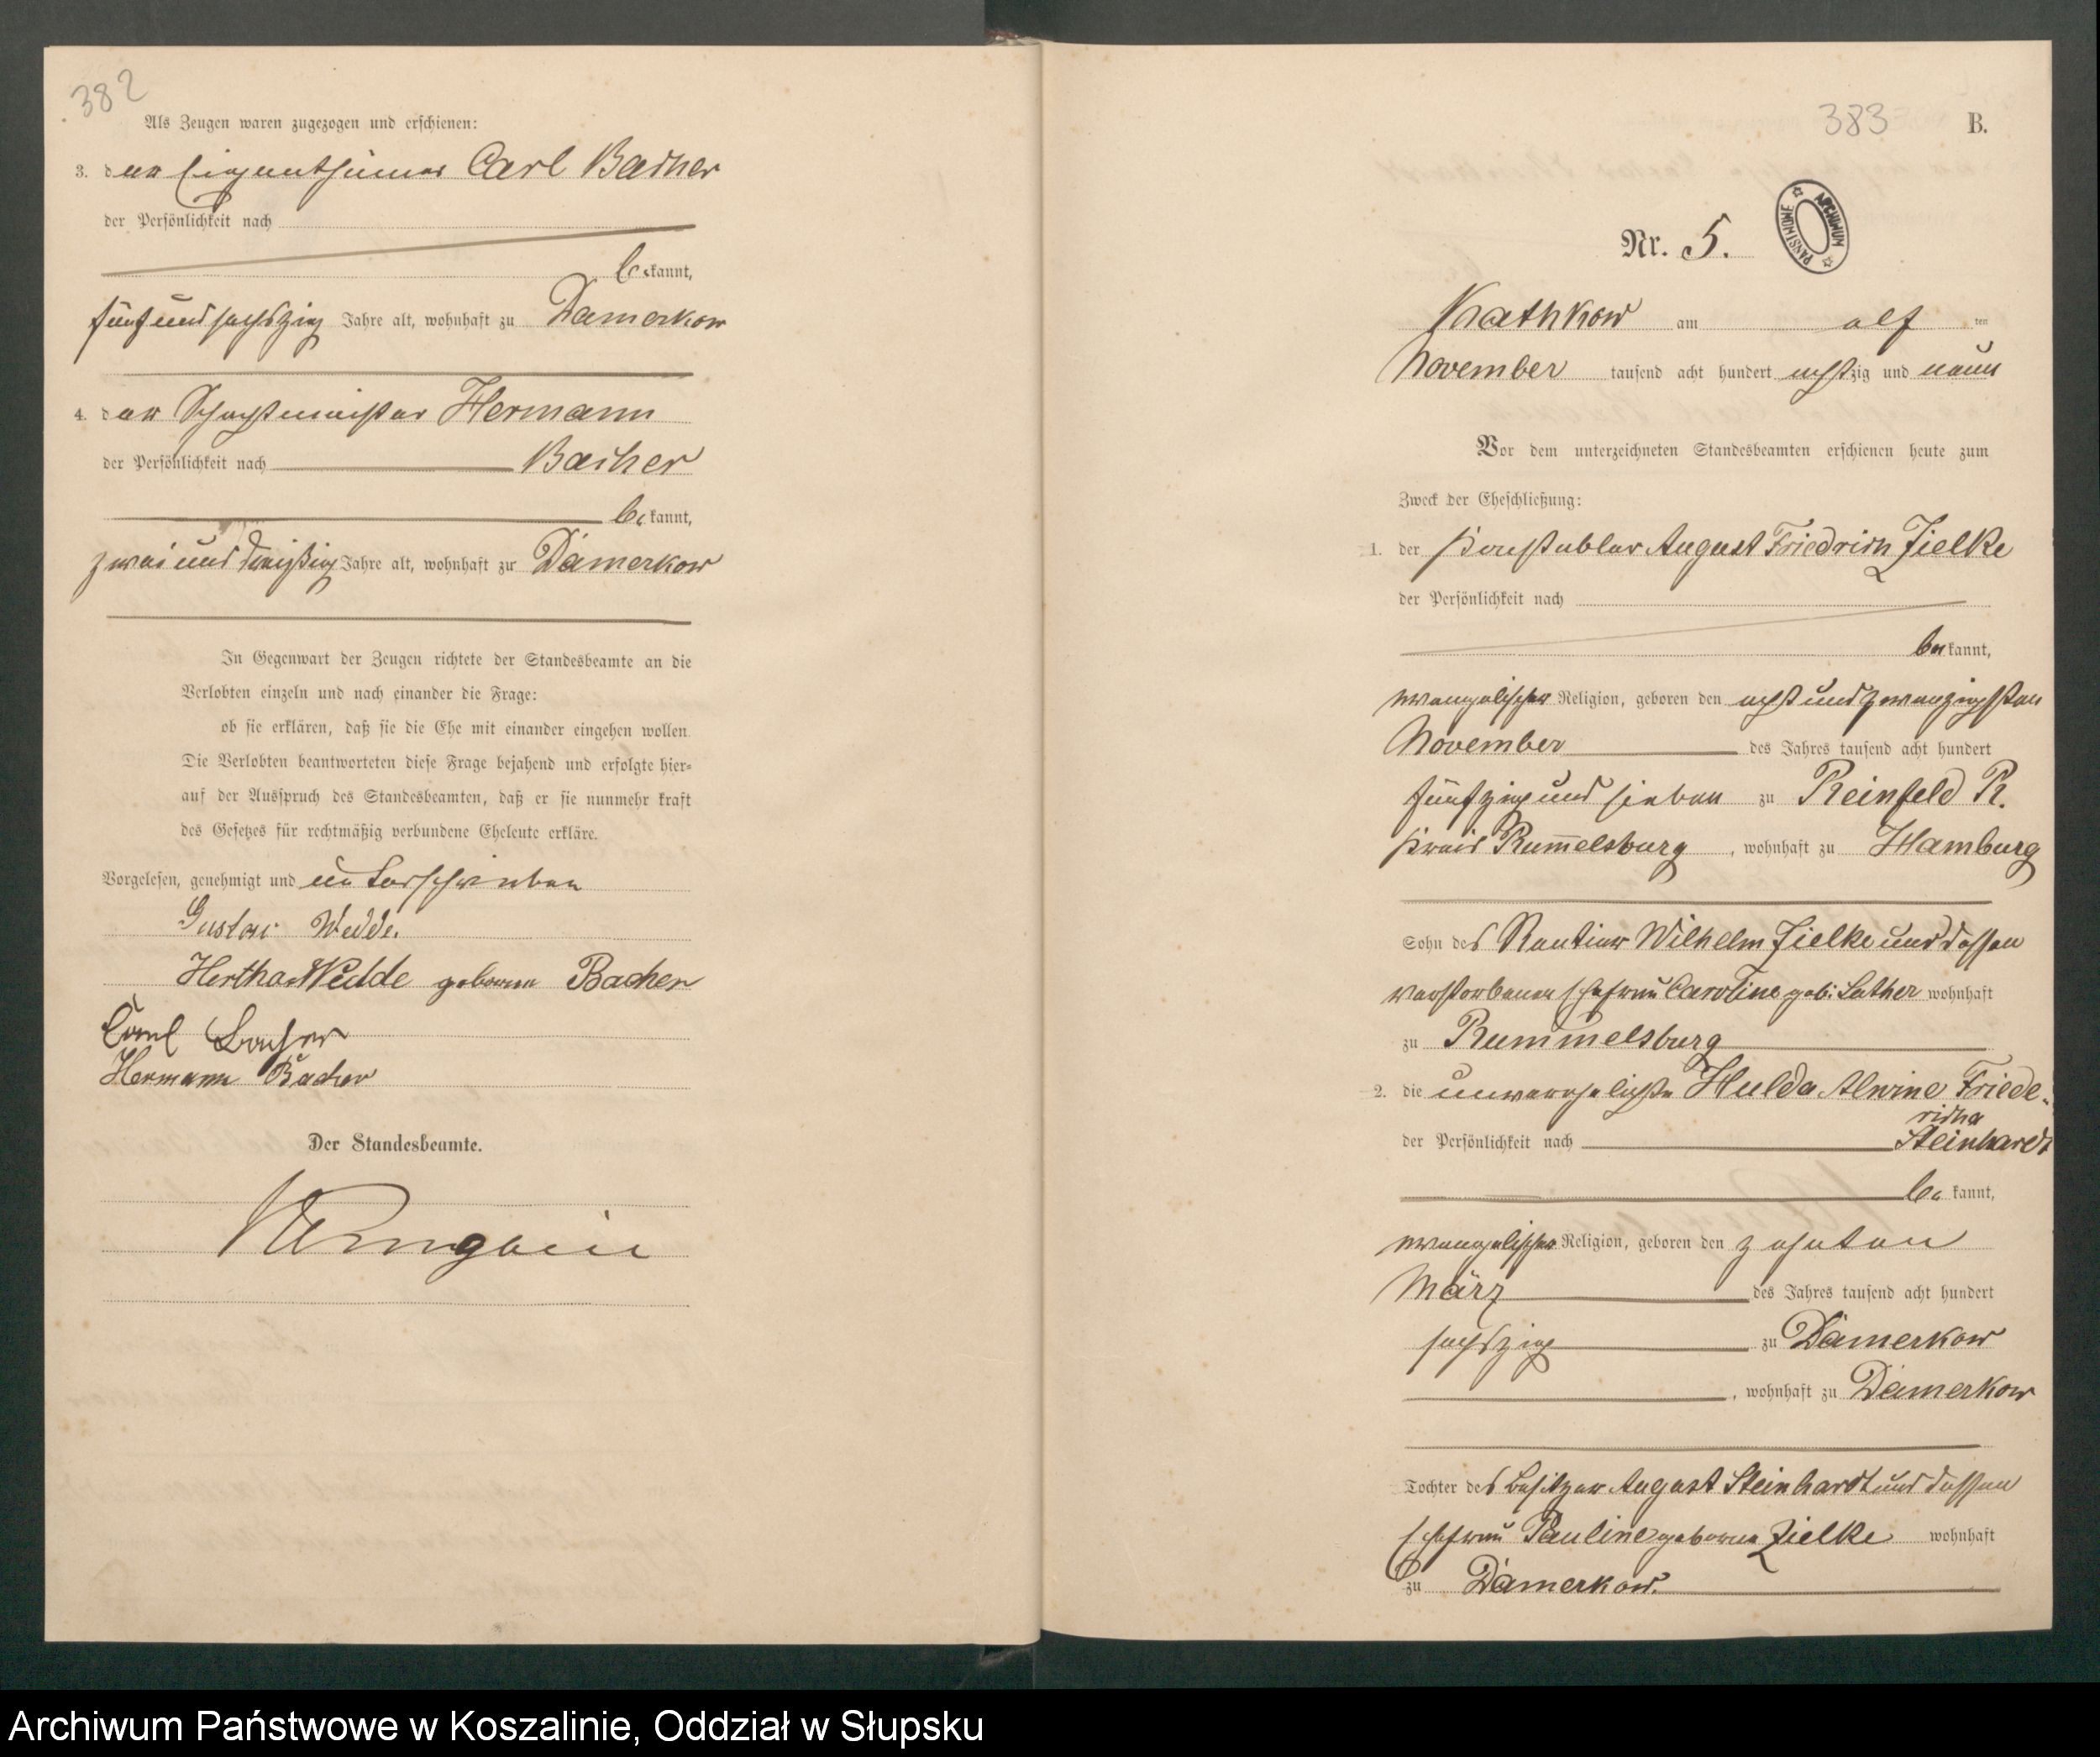 382
Als Zeugen waren zugezogen und erschienen:
3. der Eigenthümer Carl Bacher
der Persönlichkeit nach
be kannt,
fünf und sechszig Jahre alt, wohnhaft zu Damerkow
4. der Schachtmeister Hermann
der Persönlichkeit nach Bacher
be kannt,
zwei und dreißig Jahre alt, wohnhaft zu Damerkow
In Gegenwart der Zeugen richtete der Standesbeamte an die
Verlobten einzeln und nach einander die Frage:
ob sie erklären, daß sie die Ehe mit einander eingehen wollen.
Die Verlobten beantworteten diese Frage bejahend und erfolgte hier-
auf der Ausspruch des Standesbeamten, daß er sie nunmehr kraft
des Gesetzes für rechtmäßig verbundene Eheleute erkläre.
Vorgelesen, genehmigt und unterschrieben
Gustav Wedde.
Hertha Wedde geborene Bacher
Carl Bacher
Hermann Bacher
Der Standesbeamte.
383 B.
ARCHIWUM PAŃSTWOWE
Nr. 5.
Kathkow am elf ten
November tausend acht hundert achtzig und neun
Vor dem unterzeichneten Standesbeamten erschienen heute zum
Zweck der Eheschließung:
1. der Konstabler August Friedrich Zielke
der Persönlichkeit nach
be kannt,
evangelischer Religion, geboren den acht und zwanzigsten
November des Jahres tausend acht hundert
fünfzig und sieben zu Reinfeld R.
Kreis Rummelsburg, wohnhaft zu Hamburg
Sohn des Rentier Wilhelm Zielke und dessen
verstorbenen Ehefrau Caroline geb. Lather wohnhaft
zu Rummelsburg
2. die unverehelichte Hulda Alwine Friede-
richa
der Persönlichkeit nach Steinhardt
be kannt,
evangelischer Religion, geboren den zehnten
März des Jahres tausend acht hundert
sechszig zu Damerkow
, wohnhaft zu Damerkow
Tochter des Besitzer August Steinhardt und dessen
Ehefrau Pauline geborene Zielke wohnhaft
zu Damerkow.
Archiwum Państwowe w Koszalinie, Oddział w Słupsku